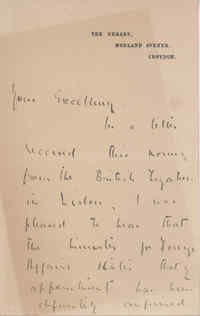 THE NURSERY,
MORLAND AVENUE,
CROYDON.
Your Excellency
In a letter
received this morning
from the British Legation
in Lisbon, I was
pleased to hear that
the Minister for Foreign
Affairs states that my
appointment has been
definitely confirmed